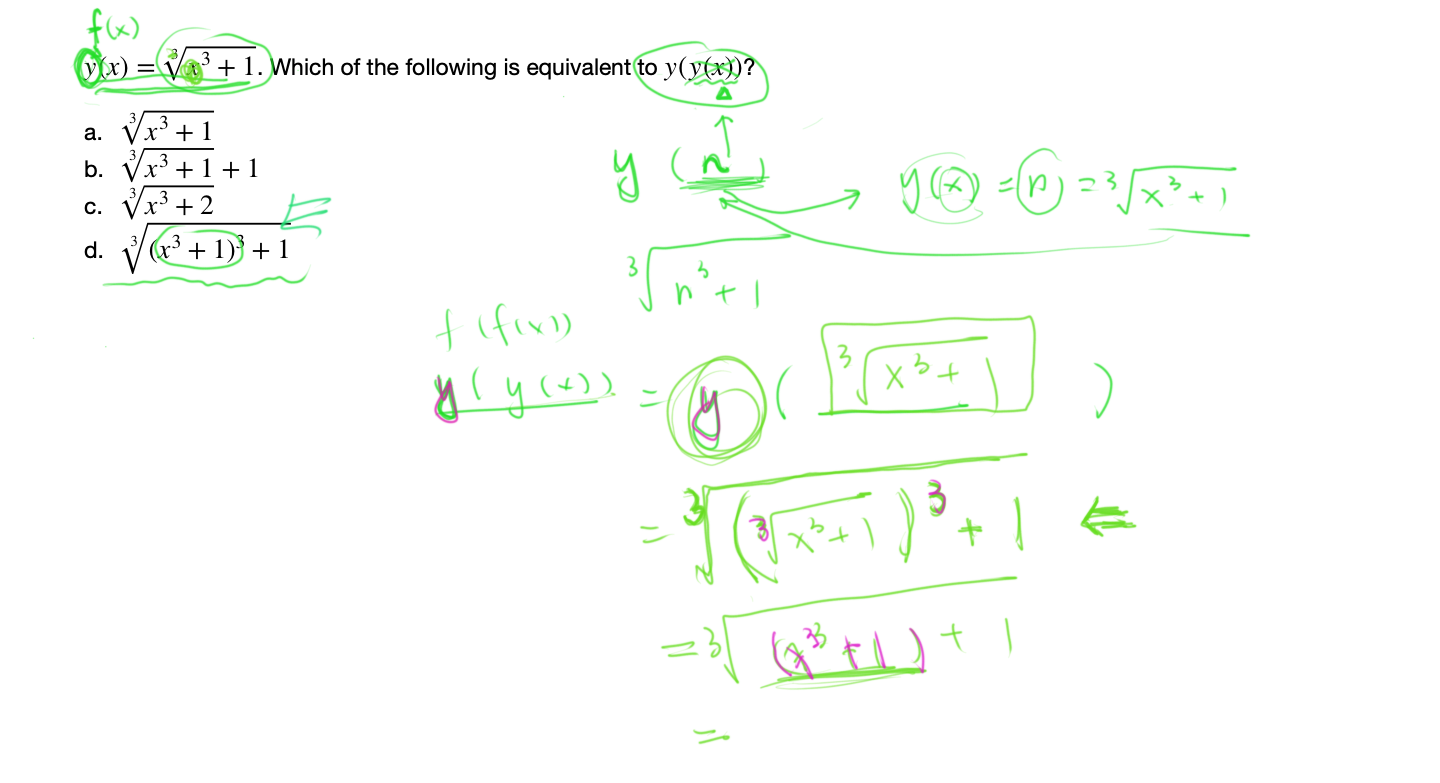 f(x)
y(x) = ∛(x³ + 1). Which of the following is equivalent to y(y(x))?
a. ∛(x³ + 1)
b. ∛(x³ + 1) + 1
c. ∛(x³ + 2)
d. ∛((x³ + 1)³ + 1)
y (n)
y(x) = n = ∛(x³ + 1)
∛(n³ + 1)
f(f(x))
y(y(x)) = y(∛(x³ + 1))
= ∛((∛(x³ + 1))³ + 1)
= ∛((x³ + 1) + 1)
=